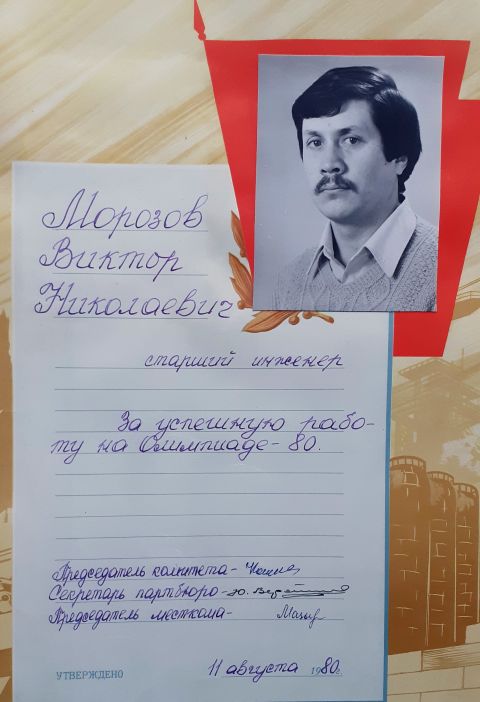 Морозов
Виктор
Николаевич
старший инженер
За успешную рабо-
ту на Олимпиаде-80.
Председатель комитета-
Секретарь партбюро-
Председатель месткома-
11 августа 1980г.
УТВЕРЖДЕНО